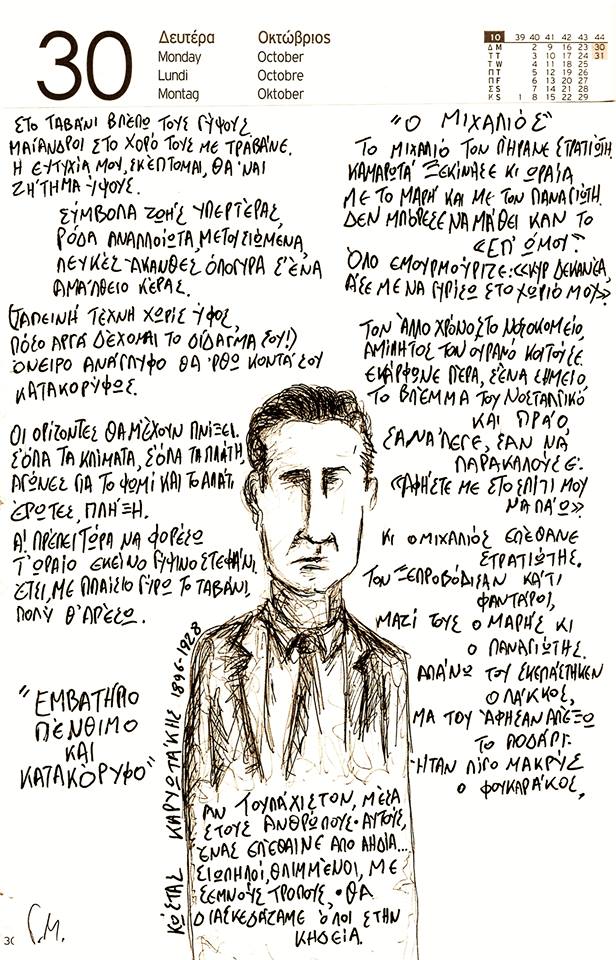 30
Δευτέρα
Monday
Lundi
Montag
Οκτώβριος
October
Octobre
Oktober
10 39 40 41 42 43 44
Δ M 2 9 16 23 30
T T 3 10 17 24 31
T W 4 11 18 25
Π T 5 12 19 26
Π F 6 13 20 27
Σ S 7 14 21 28
K S 1 8 15 22 29
ΣΤΟ ΤΑΒΑΝΙ ΒΛΕΠΩ ΤΟΥΣ ΓΥΨΟΥΣ
ΜΑΙΑΝΔΡΟΙ ΣΤΟ ΧΟΡΟ ΤΟΥΣ ΜΕ ΤΡΑΒΑΝΕ.
Η ΕΥΤΥΧΙΑ ΜΟΥ, ΣΚΕΠΤΟΜΑΙ, ΘΑ 'ΝΑΙ
ΖΗΤΗΜΑ ΥΨΟΥΣ.
ΣΥΜΒΟΛΑ ΖΩΗΣ ΥΠΕΡΤΕΡΑΣ,
ΡΟΔΑ ΑΝΑΛΛΟΙΩΤΑ, ΜΕΤΟΥΣΙΩΜΕΝΑ,
ΛΕΥΚΕΣ ΑΚΑΝΘΕΣ ΟΛΟΓΥΡΑ Σ'ΕΝΑ
ΑΜΑΛΘΕΙΟ ΚΕΡΑΣ.
(ΤΑΠΕΙΝΗ ΤΕΧΝΗ ΧΩΡΙΣ ΥΦΟΣ,
ΠΟΣΟ ΑΡΓΑ ΔΕΧΟΜΑΙ ΤΟ ΔΙΔΑΓΜΑ ΣΟΥ!)
ΟΝΕΙΡΟ ΑΝΑΓΛΥΦΟ ΘΑ 'ΡΘΩ ΚΟΝΤΑ ΣΟΥ
ΚΑΤΑΚΟΡΥΦΩΣ.
ΟΙ ΟΡΙΖΟΝΤΕΣ ΘΑ Μ'ΕΧΟΥΝ ΠΝΙΞΕΙ.
Σ'ΟΛΑ ΤΑ ΚΛΙΜΑΤΑ, Σ'ΟΛΑ ΤΑ ΠΛΑΤΗ,
ΑΓΩΝΕΣ ΓΙΑ ΤΟ ΨΩΜΙ ΚΑΙ ΤΟ ΑΛΑΤΙ,
ΕΡΩΤΕΣ, ΠΛΗΞΗ.
Α! ΠΡΕΠΕΙ ΤΩΡΑ ΝΑ ΦΟΡΕΣΩ
Τ'ΩΡΑΙΟ ΕΚΕΙΝΟ ΓΥΨΙΝΟ ΣΤΕΦΑΝΙ.
ΕΤΣΙ, ΜΕ ΠΛΑΙΣΙΟ ΓΥΡΩ ΤΟ ΤΑΒΑΝΙ,
ΠΟΛΥ Θ'ΑΡΕΣΩ.
"ΕΜΒΑΤΗΡΙΟ
ΠΕΝΘΙΜΟ
ΚΑΙ
ΚΑΤΑΚΟΡΥΦΟ"
"Ο ΜΙΧΑΛΙΟΣ"
ΤΟ ΜΙΧΑΛΙΟ ΤΟΝ ΠΗΡΑΝΕ ΣΤΡΑΤΙΩΤΗ.
ΚΑΜΑΡΩΤΑ ΞΕΚΙΝΗΣΕ ΚΙ ΩΡΑΙΑ
ΜΕ ΤΟ ΜΑΡΗ ΚΑΙ ΜΕ ΤΟΝ ΠΑΝΑΓΙΩΤΗ.
ΔΕΝ ΜΠΟΡΕΣΕ ΝΑ ΜΑΘΕΙ ΚΑΝ ΤΟ
«ΕΠ' ΩΜΟΥ".
ΟΛΟ ΕΜΟΥΡΜΟΥΡΙΖΕ: «ΚΥΡ ΔΕΚΑΝΕΑ,
ΑΣΕ ΜΕ ΝΑ ΓΥΡΙΣΩ ΣΤΟ ΧΩΡΙΟ ΜΟΥ»
ΤΟΝ ΑΛΛΟ ΧΡΟΝΟ, ΣΤΟ ΝΟΣΟΚΟΜΕΙΟ,
ΑΜΙΛΗΤΟΣ ΤΟΝ ΟΥΡΑΝΟ ΚΟΙΤΟΥΣΕ.
ΕΚΑΡΦΩΝΕ ΠΕΡΑ, Σ'ΕΝΑ ΣΗΜΕΙΟ,
ΤΟ ΒΛΕΜΜΑ ΤΟΥ ΝΟΣΤΑΛΓΙΚΟ
ΚΑΙ ΠΡΑΟ,
ΣΑ ΝΑ 'ΛΕΓΕ, ΣΑΝ ΝΑ
ΠΑΡΑΚΑΛΟΥΣΕ:
«ΑΦΗΣΤΕ ΜΕ ΣΤΟ ΣΠΙΤΙ ΜΟΥ
ΝΑ ΠΑΩ»
ΚΙ Ο ΜΙΧΑΛΙΟΣ ΕΠΕΘΑΝΕ
ΣΤΡΑΤΙΩΤΗΣ.
ΤΟΝ ΞΕΠΡΟΒΟΔΙΣΑΝ ΚΑΤΙ
ΦΑΝΤΑΡΟΙ,
ΜΑΖΙ ΤΟΥΣ Ο ΜΑΡΗΣ ΚΙ
Ο ΠΑΝΑΓΙΩΤΗΣ.
ΑΠΑΝΩ ΤΟΥ ΣΚΕΠΑΣΤΗΚΕΝ
Ο ΛΑΚΚΟΣ,
ΜΑ ΤΟΥ 'ΑΦΗΣΑΝ ΑΠΕΞΩ
ΤΟ ΠΟΔΑΡΙ:
ΗΤΑΝ ΛΙΓΟ ΜΑΚΡΥΣ
Ο ΦΟΥΚΑΡΑΚΟΣ,
ΚΩΣΤΑΣ ΚΑΡΥΩΤΑΚΗΣ 1896-1928
ΑΝ ΤΟΥΛΑΧΙΣΤΟΝ, ΜΕΣΑ
ΣΤΟΥΣ ΑΝΘΡΩΠΟΥΣ ΑΥΤΟΥΣ,
ΕΝΑΣ ΕΠΕΘΑΙΝΕ ΑΠΟ ΑΗΔΙΑ...
ΣΙΩΠΗΛΟΙ, ΘΛΙΜΜΕΝΟΙ, ΜΕ
ΣΕΜΝΟΥΣ ΤΡΟΠΟΥΣ, ΘΑ
ΔΙΑΣΚΕΔΑΖΑΜΕ ΟΛΟΙ ΣΤΗΝ
ΚΗΔΕΙΑ.
Γ.Μ.
30